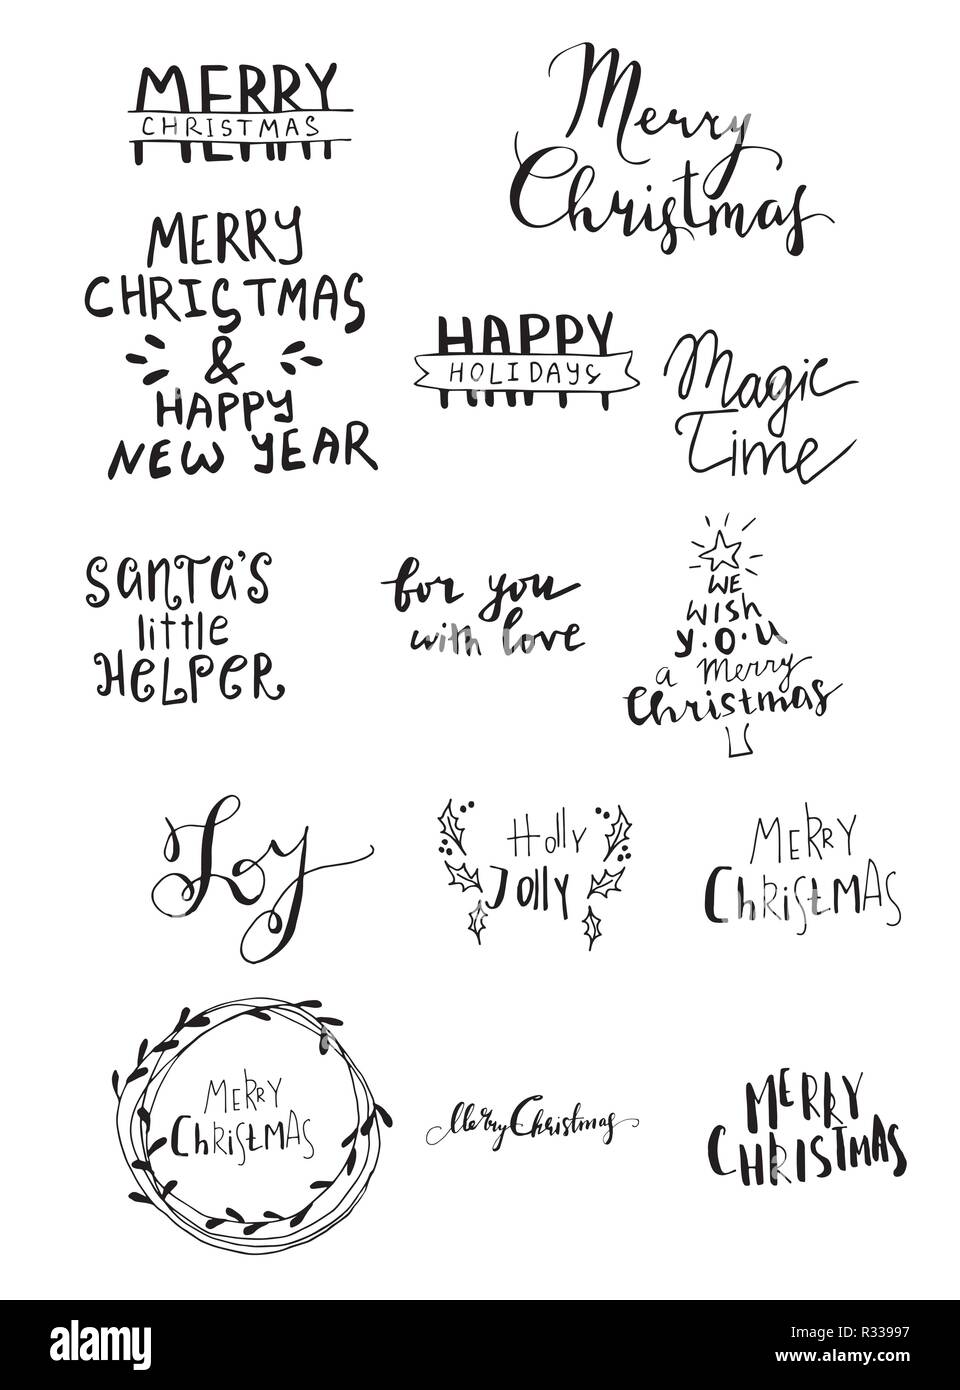 MERRY
CHRISTMAS
Merry
Christmas
MERRY
CHRISTMAS
&
HAPPY
NEW YEAR
HAPPY
HOLIDAYS
Magic
Time
SANTA'S
little
HELPER
for you
with love
WE
wish
y.o.u
a merry
Christmas
Joy
Holly
Jolly
MERRY
ChRiStMAS
MERRY
ChRiStMAS
Merry Christmas
MERRY
CHRISTMAS
alamy
Image ID: R33997
www.alamy.com